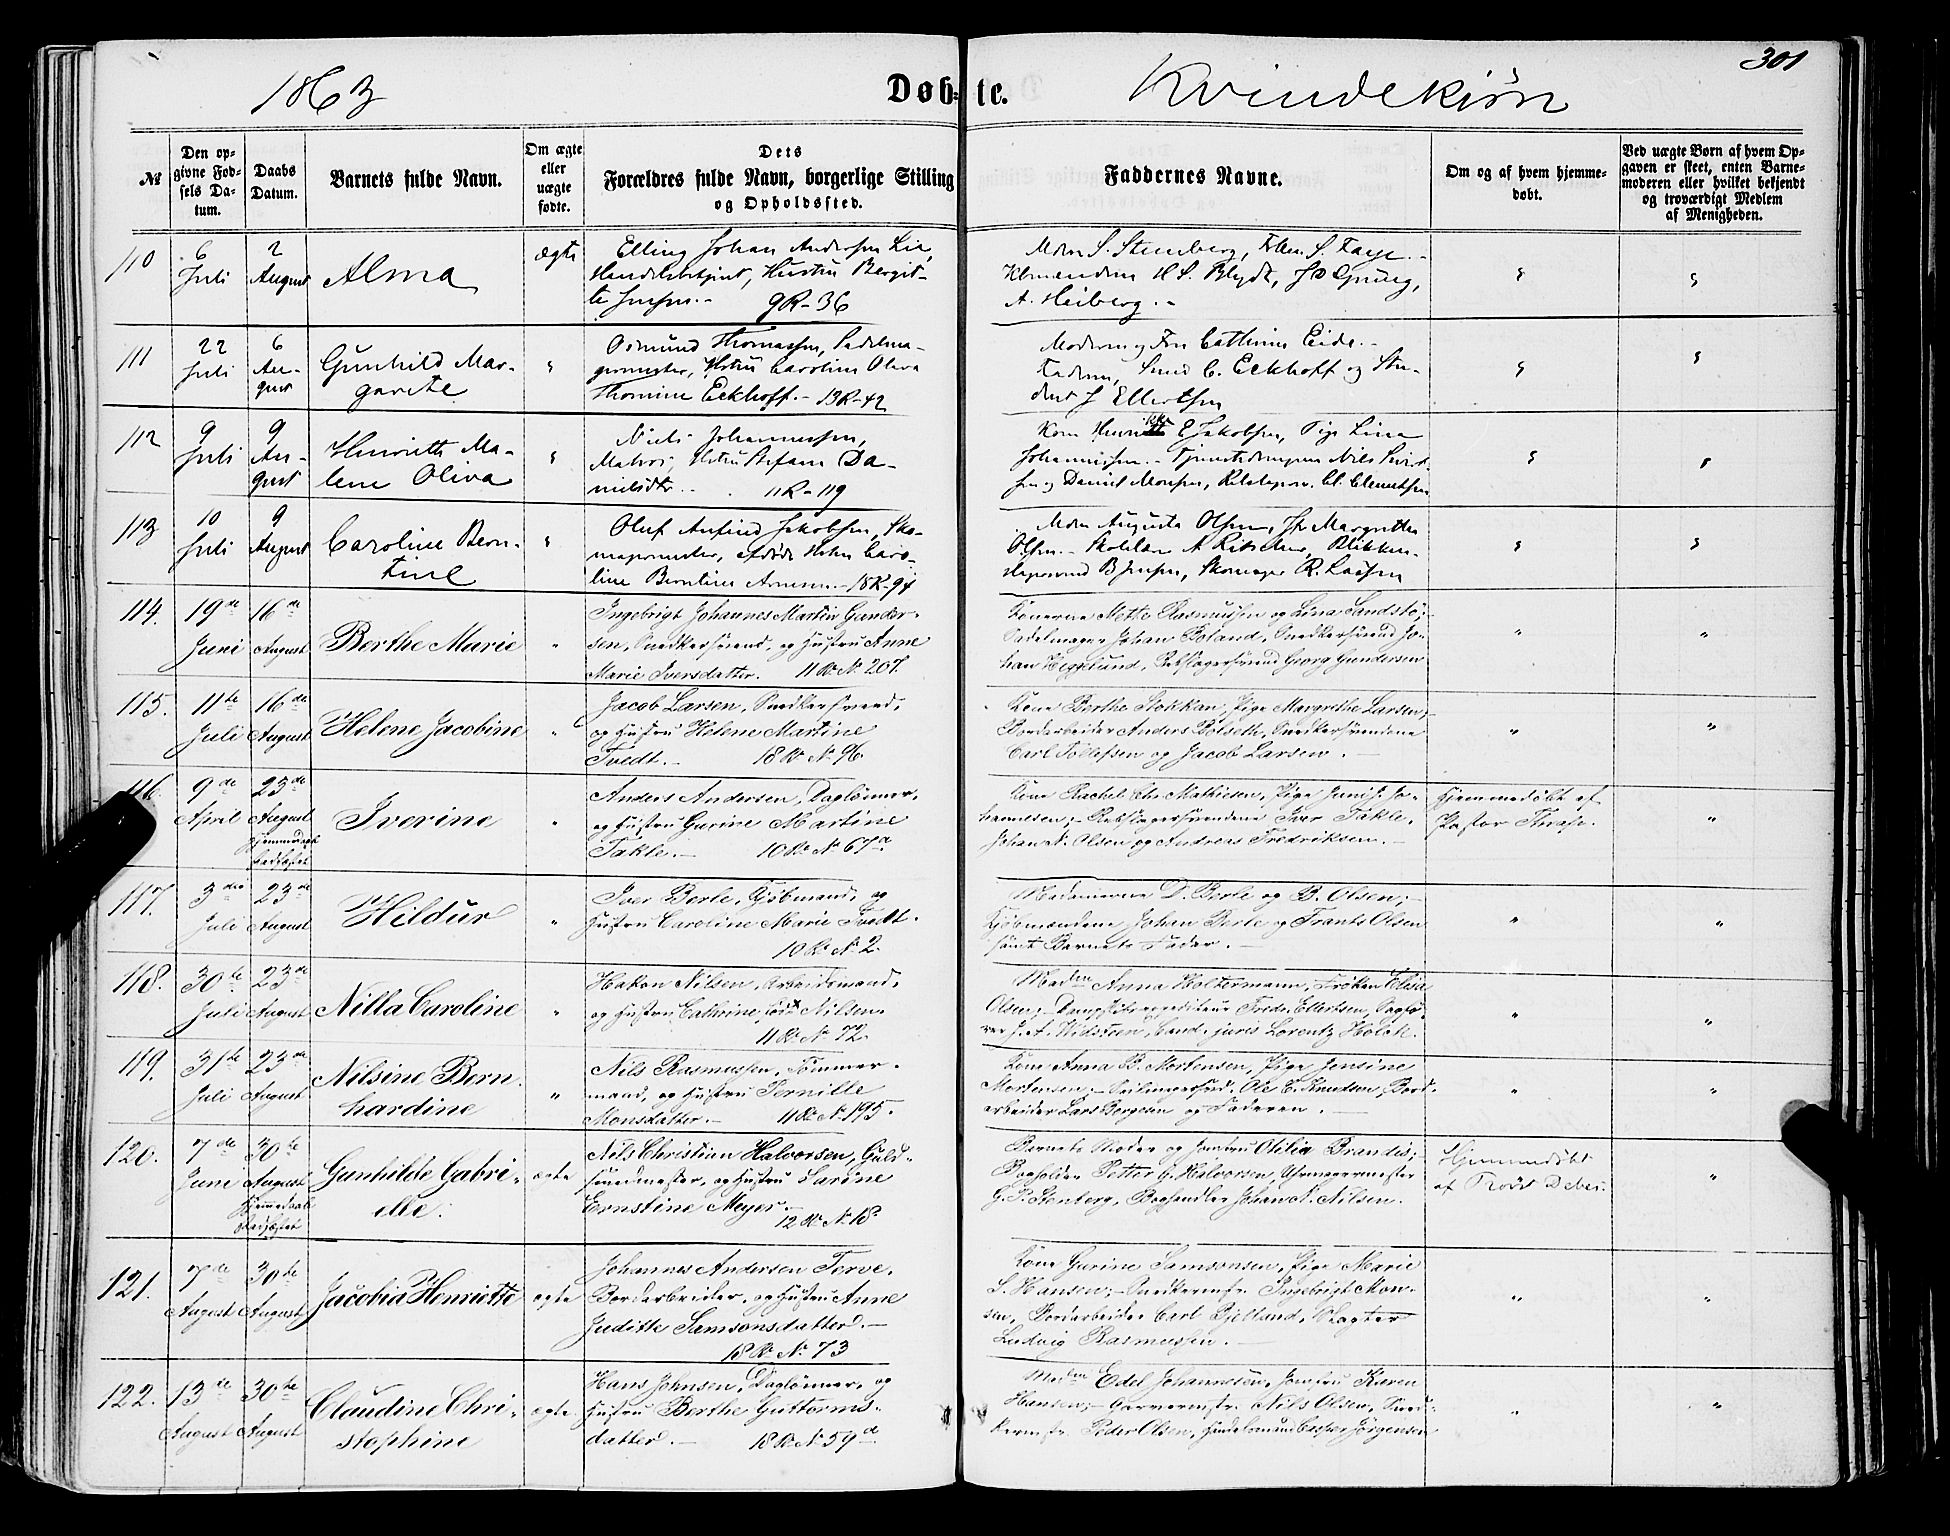 301
1863 Døbte. Kvindekjøn
№
Den opgivne Fødsels Datum.
Daabs Datum.
Barnets fulde Navn.
Om ægte eller uægte fødte.
Dets Forældres fulde Navn, borgerlige Stilling og Opholdssted.
Faddernes Navne.
Om og af hvem hjemmedøbt.
Ved uægte Børn af hvem Opgaven er skeet, enten Barnemoderen eller hvilket bekjendt og troværdigt Medlem af Menigheden.
110 6 Juli 2 August Alma ægte
Elling Johan Andersen Lie,
Hustru Bergit-
te Jensen.- 9R-36
A. Heiberg.-
111 22 Juli 6 August Gunhild Mar-
garete "
Osmund Thomassen, Sadelma-
germester, Hstru Caroline Oliva
Thomine Eckhoff.- 13R-42
Moderen og Fru Cathrine Eide.-
Faderen, C. Eckhoff og Stu-
dent J Ellertsen
112 9 Juli 9 August Henriette Ma-
lene Oliva "
Niels Johannessen,
Matros, Hstru Stefane Da-
nielsdtr.- 11R-119
Kone E Jakobsen, Pige Lina
Johannessen.- Tjenestedrengen Nils
og Daniel Monsen, Cl. Clemetsen
113 10 Juli 9 August Caroline Bern-
tine "
Oluf Anfind Jakobsen, Sko-
magermester, Caro-
line Berntine 18R-94
Mdm Augusta Olsen, Margrethe
Olsen.- A Blikken-
slagersvend B Jensen, Skomager R. Larsen
114. 19de Juni 16de August Berthe Marie "
Ingebrigt Johannes Martin Gunder-
sen, Snedkersvend, og Hustru Anne
Marie Iversdatter. 11 R. N. 207.
Konerne Mette Rasmussen og Lina Sandstø;
Sadelmager Johan Boland, Snedkersvend Jo-
han Heggelund, Rebslagersvend Georg Gundersen
115. 11te Juli 16de August Helene Jacobine "
Jacob Larsen, Snedkersvend,
og Hustru Helene Martine
Tvedt.- 18 R. N. 96.
Kone Berthe Stokken, Pige Margrethe Larsen;
Bordarbeider Anders Bolseth, Snedkersvendene
Carl Tollefsen og Jacob Larsen.
116. 9de April 23de August Hjemmedaab stadfæstet Iverine "
Anders Andersen, Daglønner,
og Hustru Gurine Martine
Takle.- 10 R. N. 67a
Kone Rachel Mathiesen, Pige Jo-
hannesen;- Rebslagersvendene Iver Takle,
Johan N. Olsen og Andreas Fredriksen.-
Hjemmedøbt af
Pastor
117. 3die Juli 23de August Hildur "
Iver Berle, Kjøbmand, og
Hustru Caroline Marie Tvedt.
10 R. N. 2.
Madamerne D. Berle og B. Olsen;-
Kjøbmændene Johan Berle og Frants Olsen
samt Barnets Fader.-
118. 30te Juli 23de August Nilla Caroline "
Hakon Nilsen, Arbeidsmand,
og Hustru Cathrine, født Nilsen.
11 R. N. 72.
Madm Anna Holtermann, Frøken Elisa
Olsen;- Dampskibsexpediteur Fredr. Ellertsen, Sagfø-
rer J. A. cand. juris Lorentz Holck.
119. 31te Juli 23de August Nilsine Bern-
hardine "
Nils Rasmussen, Tømmer-
mand, og Hustru Pernille
Monsdatter.- 11 R. N. 195.
Kone Anna B. Mortensen, Pige Jensine
Mortensen;- Ole E. Knudsen, Bord-
arbeider Lars Bergesen og Faderen.-
120. 7de Juni 30te August Hjemmedaab stadfæstet Gunhilde Gabri-
elle. ægte
Nils Christian Halvorsen, Guld-
smedmester, og Hustru Sarine
Ernstine Meyer.-
12 R. N. 18.
Barnets Moder og Jomfru Otilia Brandis;
Bogholder Petter G. Halvorsen, Uhrmagermester
G. P. Stenberg, Boghandler Johan N. Nilsen.
Hjemmedøbt
af Provst Debes.
121. 7de August 30te August Jacobia Henriette ægte
Johannes Andersen Torve,
Bordarbeider, og Hustru Anne
Juditte Samsonsdatter.-
18 R. N. 73
Kone Gurine Samsonsen, Pige Marie
S. Hansen;- Snedkermstr. Ingebrigt Mon-
sen, Bordarbeider Carl Gjelland, Slagter
Ludvig Rasmussen.-
122. 13de August 30te August Claudine Chri-
stophine ægte
Hans Johnsen, Daglønner, og
Hustru Berthe Guttorms-
datter.- 18 R. N. 59d
Madm Edel Johannesen, Jomfru Karen
Hansen;- Garvermstr. Nils Olsen, Sned-
kermstr. Peder Olsen, Handelsmand Casper Jørgensen